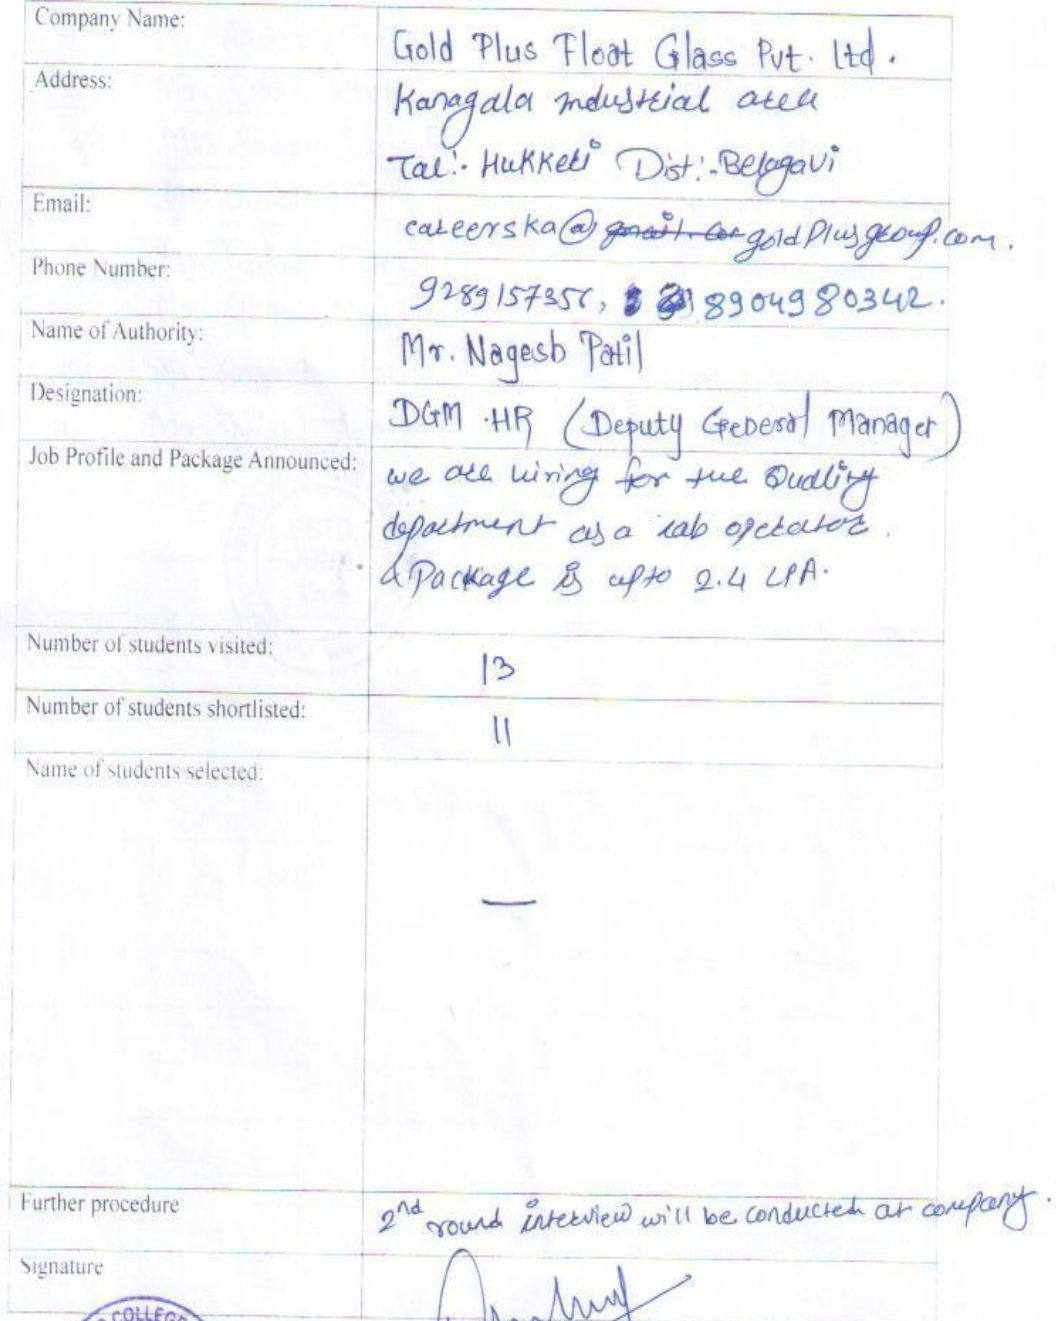 Company Name:
Gold Plus Float Glass Pvt. Ltd.
Address:
Kanagala industrial area
Tal:- Hukkeri Dist:- Belagavi
Email:
careerska@goldplusgroup.com.
Phone Number:
8904980342.
Name of Authority:
Mr. Nagesh Patil
Designation:
DGM HR (Deputy General Manager)
Job Profile and Package Announced:
we are hiring for the Quality
department as a lab operator.
& Package is upto 2.4 LPA.
Number of students visited:
13
Number of students shortlisted:
11
Name of students selected:
—
Further procedure
2nd round interview will be conducted at company.
Signature
COLLEGE